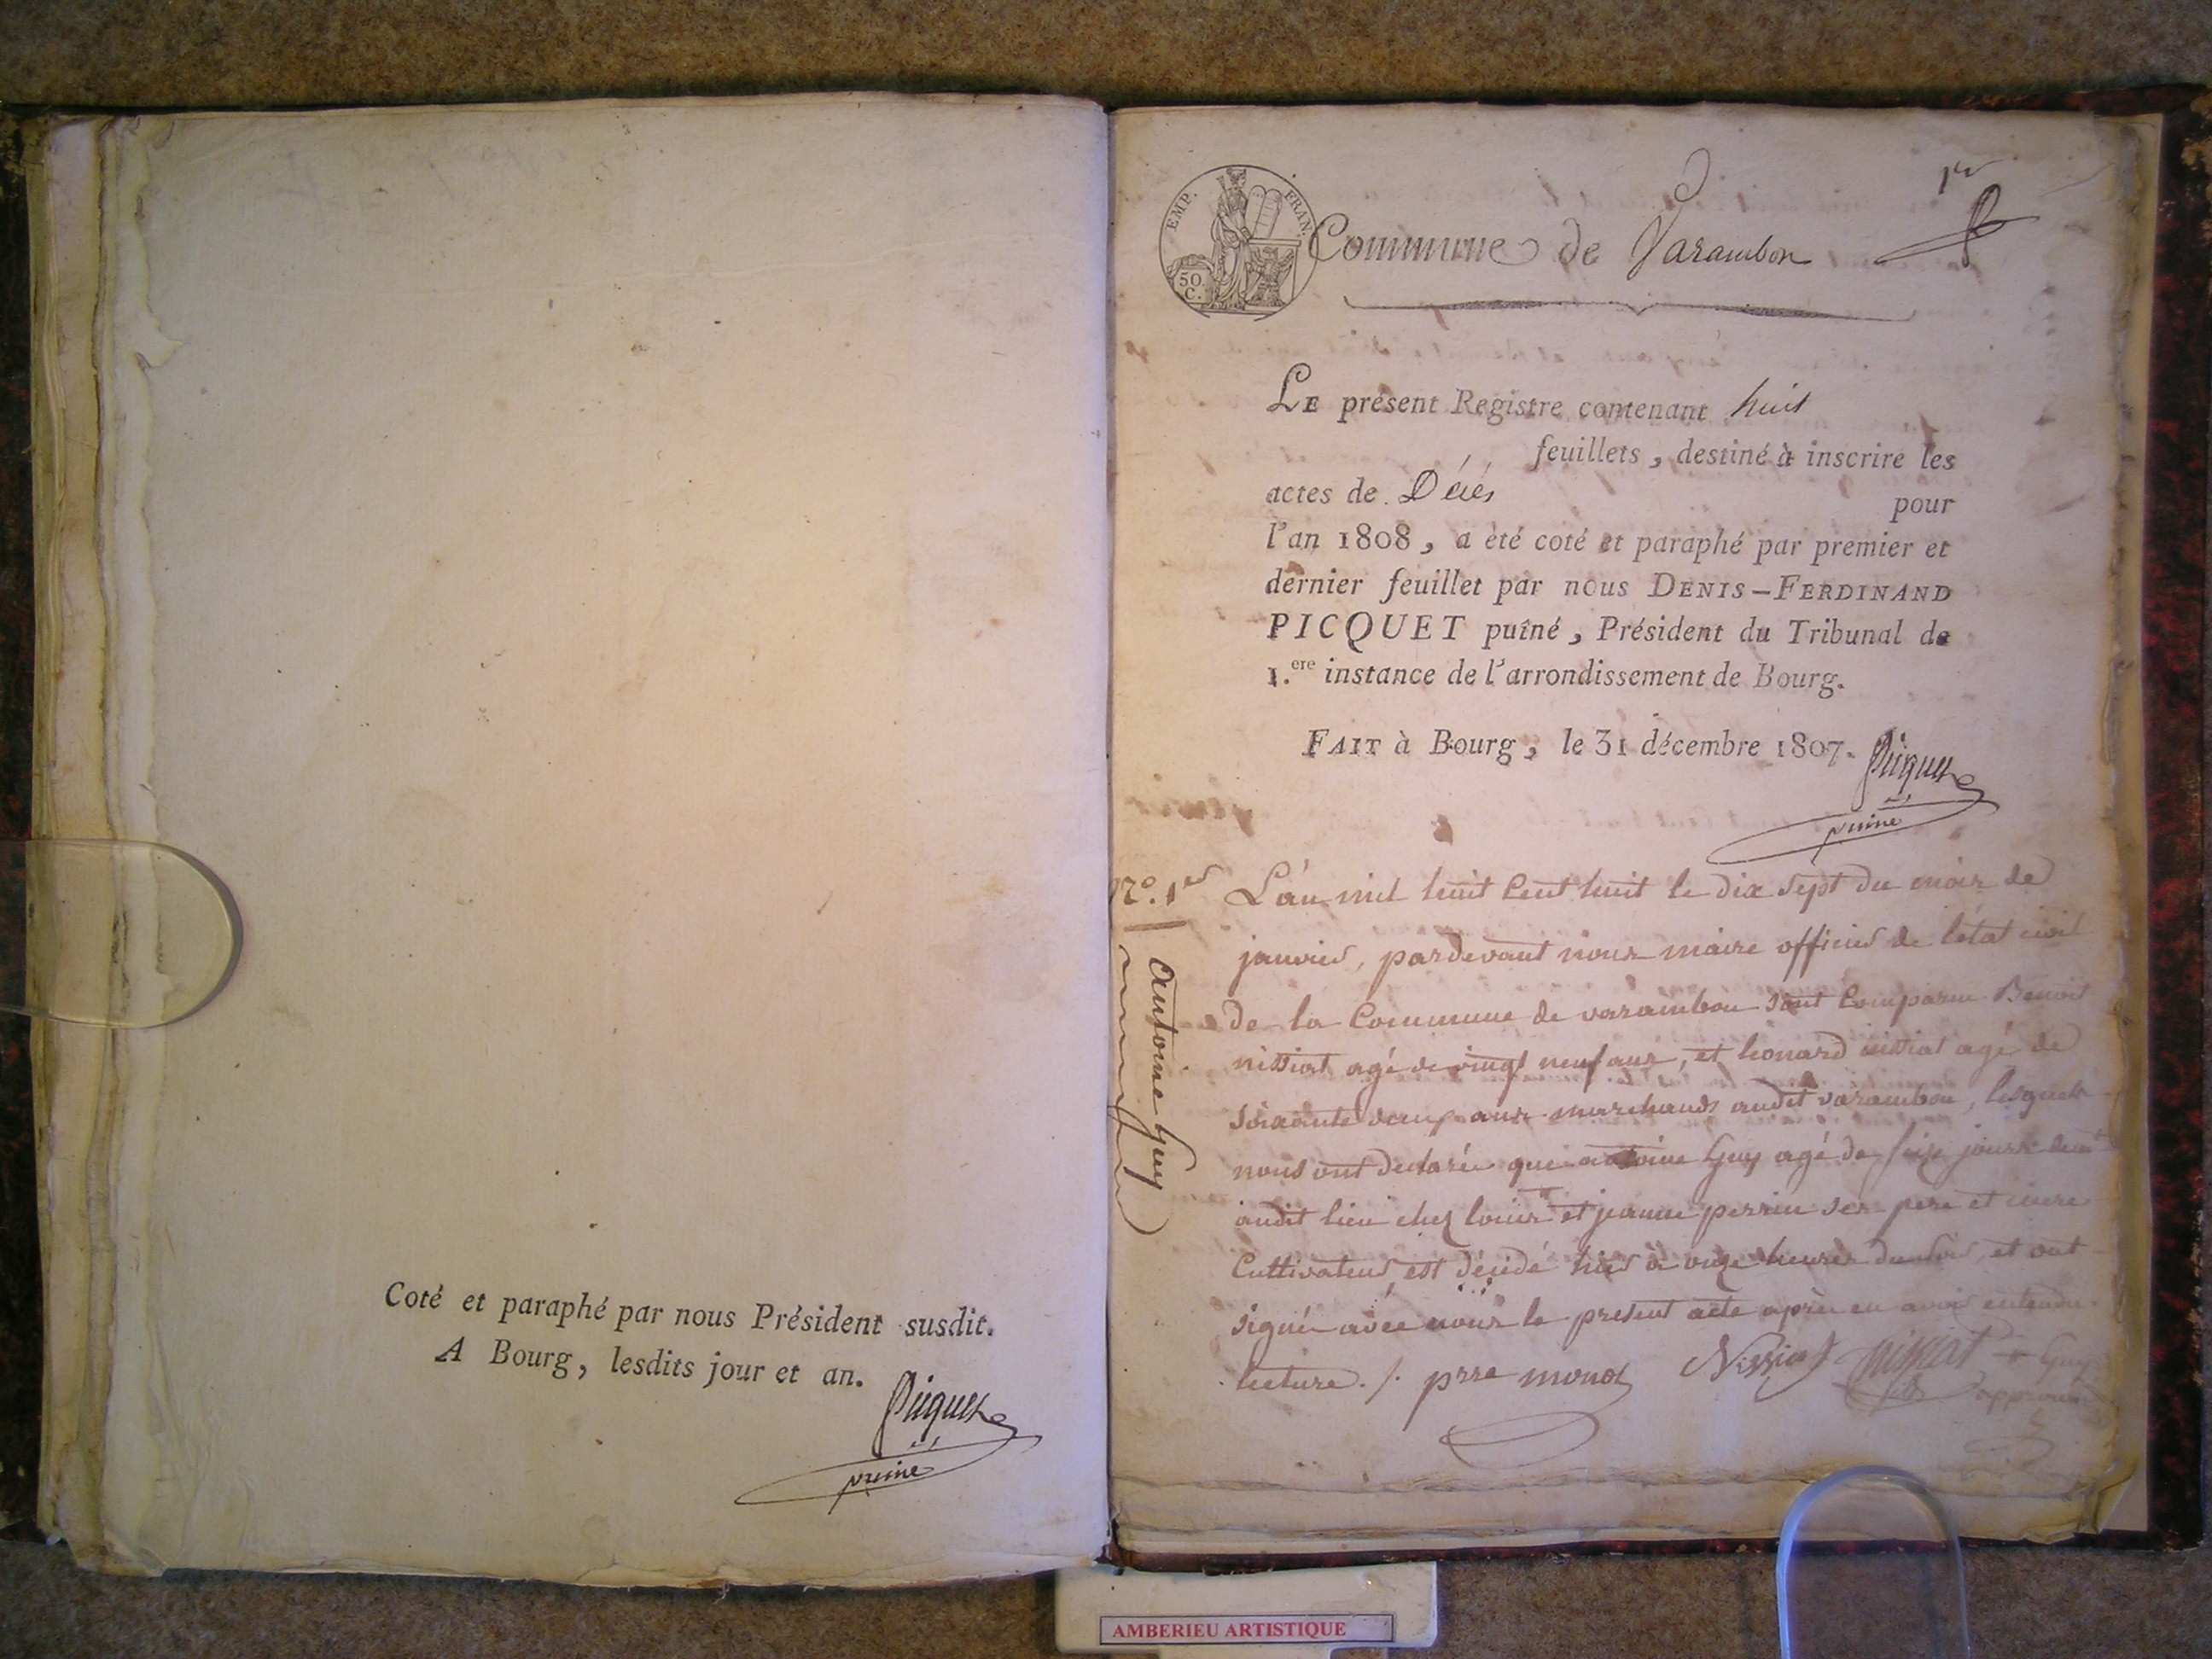 Coté et paraphé par nous Président susdit.
A Bourg, lesdits jour et an.
Picquet
puiné
1er
EMP. FRAN.
50 C.
Commune de Varambon
LE présent Registre contenant huit
feuillets, destiné à inscrire les
actes de Décés pour
l'an 1808, a été coté et paraphé par premier et
dernier feuillet par nous DENIS-FERDINAND
PICQUET puîné, Président du Tribunal de
1.ere instance de l'arrondissement de Bourg.
FAIT à Bourg, le 31 décembre 1807.
Picquet
puiné
No. 1er
antoine Guy
L'an mil huit Cent huit le dix sept du mois de
janvier, pardevant nous maire officier de l'état civil
de la Commune de varambon sont Comparu Benoit
nissiat agé de vingt neuf ans, et leonard nissiat agé de
soixante ans marchands audit varambon, lesquels
nous ont declarés que antoine Guy agé de seize jours
audit lieu chez louis et jeanne perrin ses pere et mere
Cultivateur est décédé hier à onze heures du soir, et ont
signé avec nous le present acte après en avoir entendu
lecture ./. prre monod Nissiat nissiat Guy
approuvé
AMBERIEU ARTISTIQUE